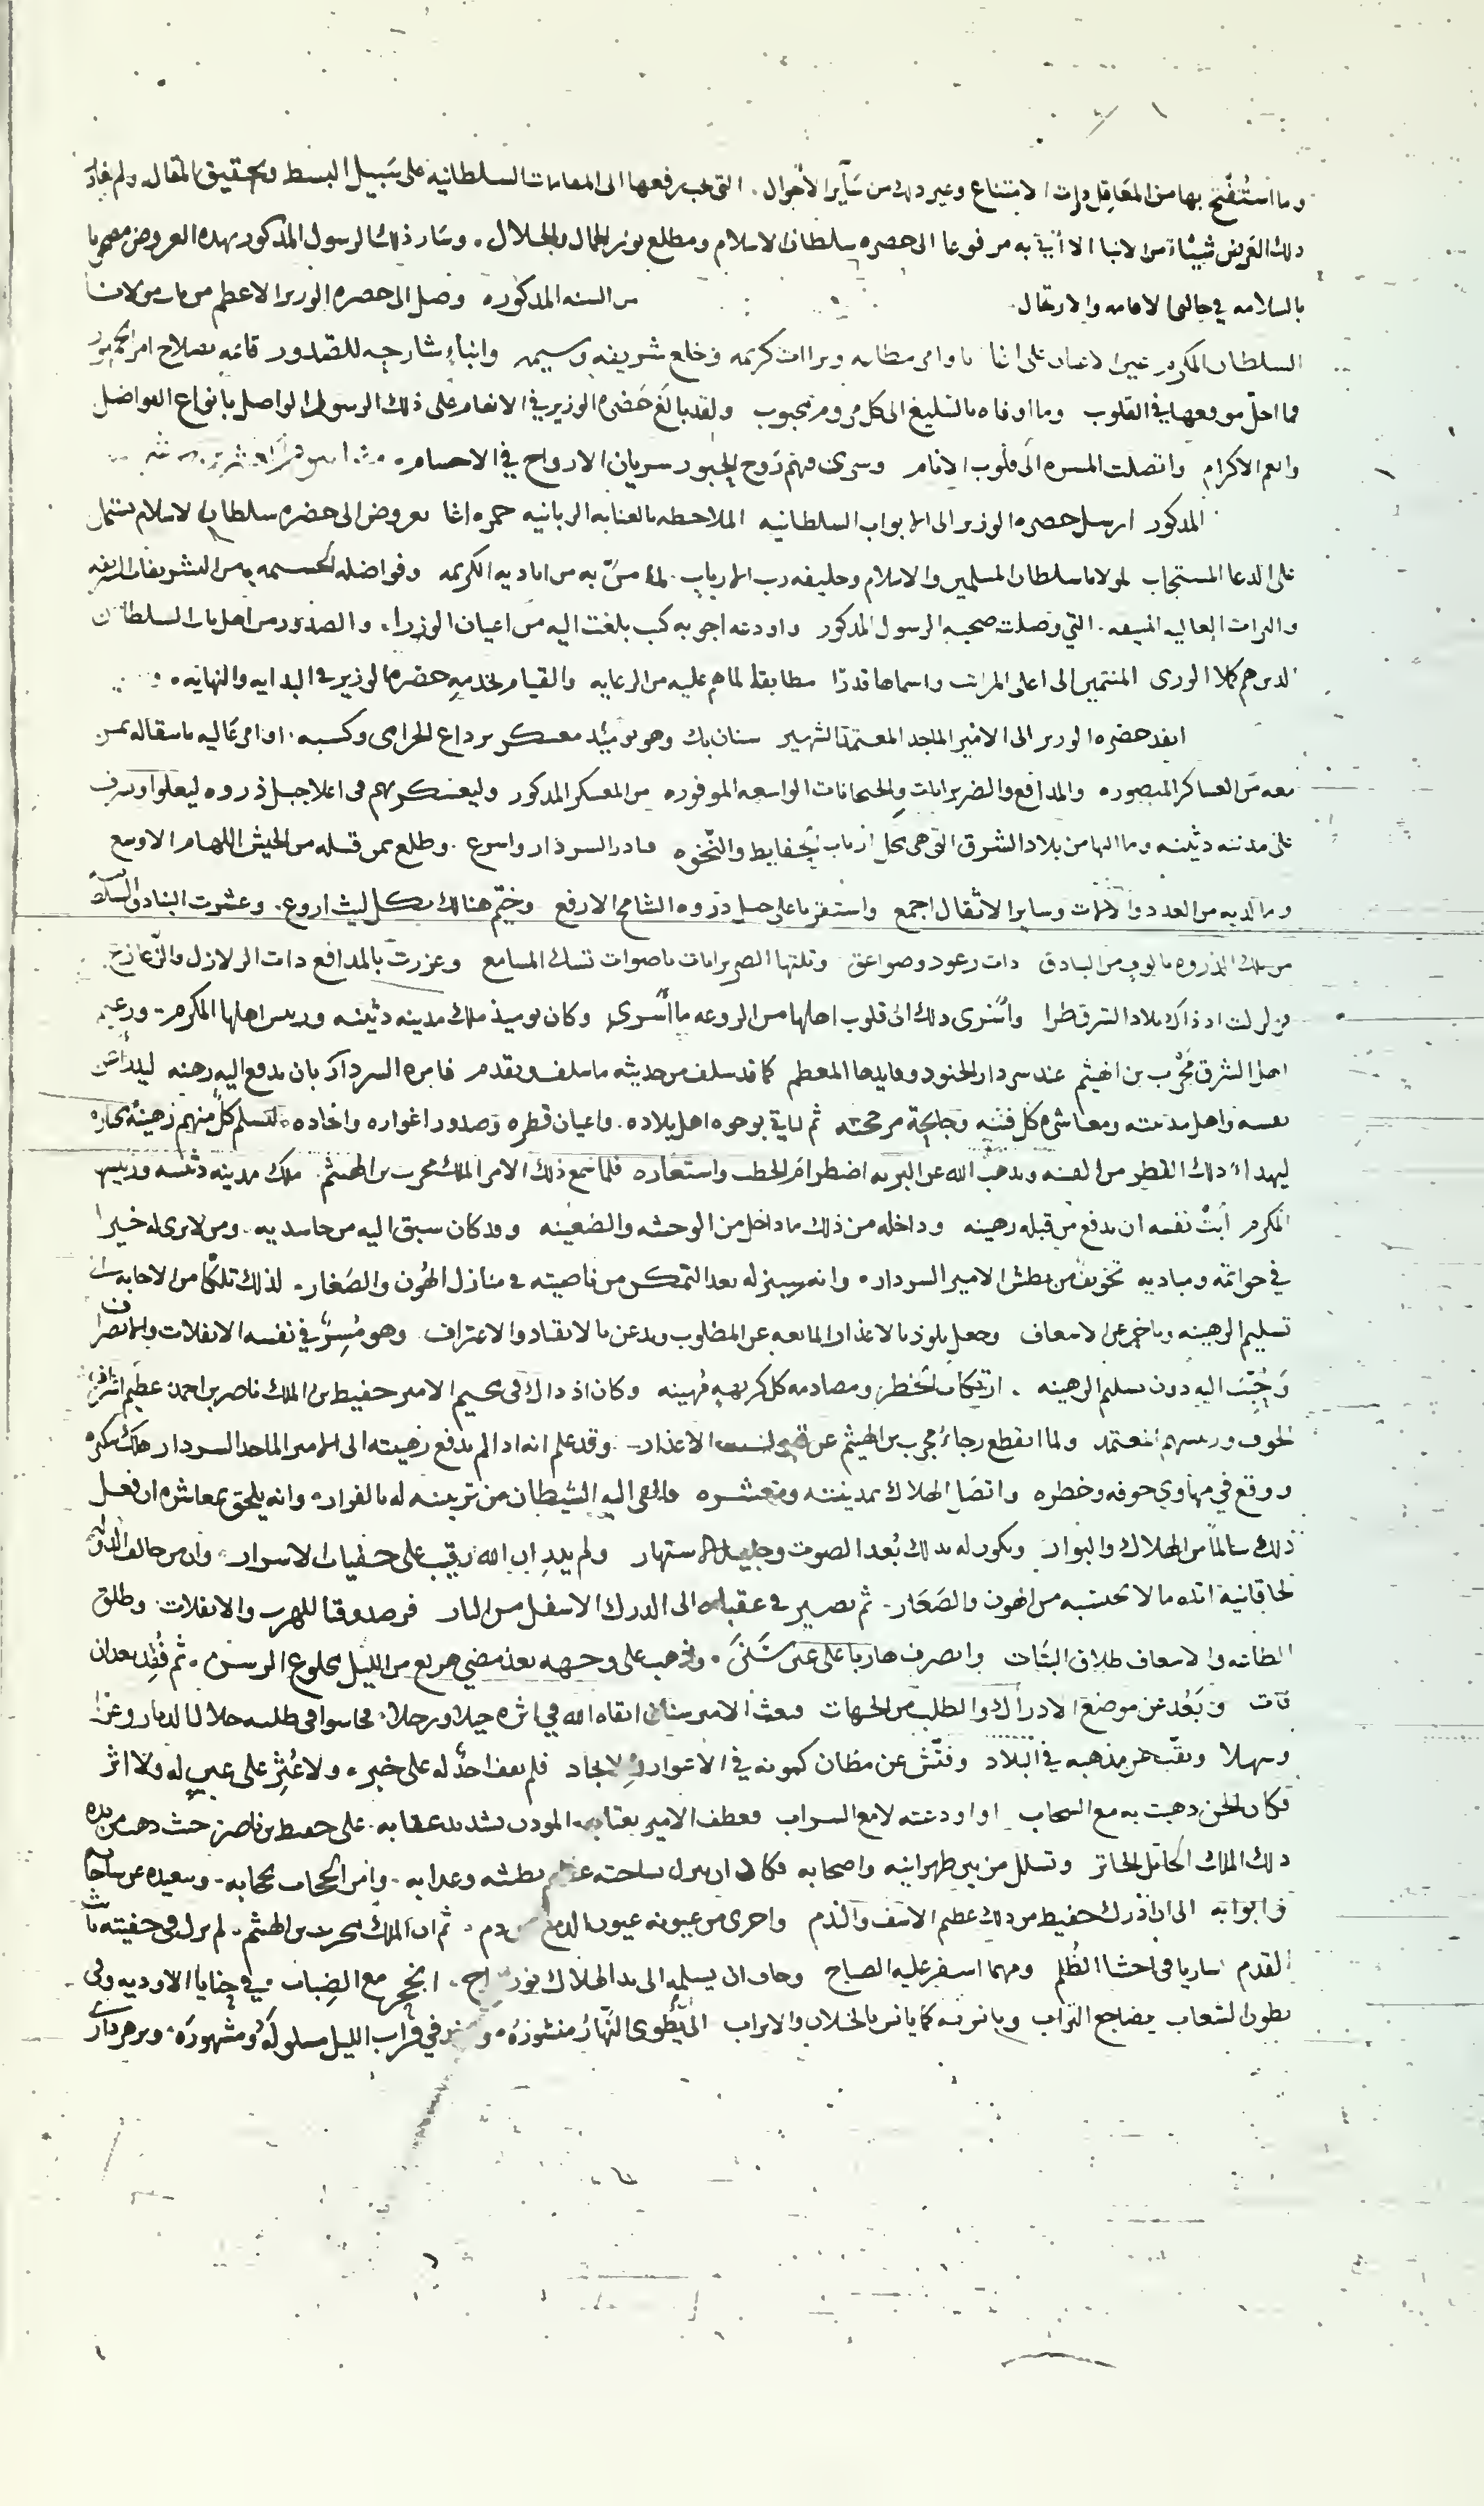 وما استفتح بها من المعاقل ذات الامتناع وغير ذلك من سآير الاحوال . التي يجب رفعها الى المقامات السلطانية على سبيل البسط وتحقيق المقال ولم يغادر
ذلك العرض شيئا من الانبا الا أتى به مرفوعا الى حضره سلطان الاسلام ومطلع نور الجمال والجلال . وسار ذلك الرسول المذكور بهذه العروض
بالسلامه في حالتى الاقامه والارتحال . من السنه المذكوره وصل الى حضره الوزير الاعظم من باب مولانا
السلطان المكرم عين الاعيان على اغا باوامر مطاعه وبراات كريمه وخلع شريفه وسيمه وانباء شارحه للصدور قاضيه بصلاح امر الجمهور
فما احلى موقعها في القلوب وما اوفاه بالتبليغ الى كل مروم محبوب ولقد بالغ حضره الوزير في الانعام على ذلك الرسول الواصل بانواع الفواضل
وانعم الاكرام واتصلت المسره الى قلوب الانام وسرى فيهم روح الحبور سريان الارواح في الاجسام .
المذكور ارسل حضره الوزير الى الابواب السلطانيه الملاحظه بالعنايه الربانيه حمزه اغا بعروض الى حضره سلطان الاسلام تشتمل
على الدعا المستجاب لمولانا سلطان المسلمين والاسلام وخليفه رب الارباب . لما منّ به من اياديه الكريمه وفواضله الجسيمه ومن التشريفات الشريفه
والبراات العاليه المنيفه . التي وصلت صحبه الرسول المذكور واودعه اجوبه كتب بلغت اليه من اعيان الوزراء والصدور من اهل باب السلطان
الذين هم كملا الورى المنتمين الى اعلى المراتب واسماها قدرا مطابقا لما هم عليه من الرعايه والقيام بخدمه حضره الوزير في البدايه والنهايه .
انفذ حضره الوزير الى الامير الماجد المعتمد الشهير سنان بك وهو يومئذ معسكر برداع الحرامى وكسبه . اوامر عاليه بانتقاله بمن
معه من العساكر المنصوره والمدافع والضربزانات والجبخانات الواسعه الموفوره من المعسكر المذكور وليعسكر بهم فى اعلا جبل ذروه ليعلوا ويشرف
على مدينه دثينه وما اليها من بلاد الشرق التى هى محل ارباب الحفايظ والنخوه فبادر السردار واسرع . وطلع بمن قبله من الجيش اللهام الاوسع
وما لديه من العدد والالات وساير الاثقال اجمع واستقر بها على جبل ذروه الشامخ الارفع وخيّم هنالك بكل ليث اروع . وعشرت البنادق
من تلك الذروه بالوف من البنادق ذات رعود وصواعق وتلتها الضربزانات باصوات تسك المسامع وعززت بالمدافع ذات الزلازل والزعازع
فزلزلت اذ ذاك بلاد الشرق طرا وأسرى ذلك الى قلوب اهلها من الروعه ما أسرى وكان يوميذ ملك مدينه دثينه ورييس اهلها المكرم . وزعيم
اهل الشرق محرب بن الهيثم عند سردار الجنود وقايدها المعظم كما قد سلف من حديثه ما سلف وتقدم فامره السردار بان يدفع اليه رهينه ليبدأ عن
نفسه واهل مدينته ومعاشره كل فتنه وجايحة مرجحنه ثم ليات بوجوه اهل بلاده . واعيان قطره وصدور اغواره وانجاده . لتسلم كل منهم رهينه
ليهدأ ذلك القطر من الفتنه ويذهب الله عن البريه اضطرام الخطب واستعاره فلما سمع ذلك الامر الملك محرب بن الهيثم . ملك مدينه دثينه ورييسها
المكرم أبت نفسه ان يدفع من قبله رهينه وداخله من ذلك ما داخل من الوحشه والضغينه وقد كان سبق اليه من حاسديه . ومن لا يرى له خيرا
في خواتمه ومباديه تخويف من بطش الامير السردار . وانه سينزله بعد التمكن من ناصيته في منازل الهون والصغار . لذلك تلكّا من الاجابه الى
تسليم الرهينه وتاخر عن الاسعاف وجعل يلوذ بالاعذار المانعه عن المطلوب ويدعى بالانقياد والاعتراف وهو مسرّ في نفسه الانفلات والانصراف
وحبب اليه دون تسليم الرهينه . ارتكاب الخطر ومصادمه كل كريهه مهينه وكان اذ ذاك فى مخيم الامير حفيظ بن الملك ناصر بن احمد عظيم اشراف
الجوف ورييسهم المعتمد ولما انقطع رجاء محرب بن الهيثم عن الاعذار . وقد علم انه اذا لم يدفع رهينته الى الامير الماجد السردار هلك بمكره
ووقع في مهاوي خوفه وخطره واتصل الهلاك بمدينته ومعشره والقى اليه الشيطان من تزيينه له بالفرار . وانه يلحق بمعاشره ان فعل
ذلك سالماً من الهلاك والبوار ويكون له بذلك بُعد الصوت وجميل الاشتهار ولم يدرِ ان الله رقيب على خفيات الاسرار . وان من خالف الدوله
الخاقانيه اتاه ما لا يحتسبه من الهون والصغار . ثم يصير في عقباه الى الدرك الاسفل من النار فرصد وقتا للهرب والانفلات . وطلق
الطاعه والاسعاف طلاق البتات وانصرف هاربا على غير سنن . وذهب على وجهه بعد مضي هزيع من الليل مخلوع الرسن . ثم فقد بعد ان
فات وبعد عن موضع الادراك والطلب من الجهات فبعث الامير سنان ابقاه الله في اثره خيلا ورجلا . فجاسوا فى طلبه خلال الديار وعرا
وسهلا ونقّب عن مذهبه في البلاد وفتّش عن مظان كمونه في الاغوار والانجاد فلم يقف احدٌ له على خبر . ولا عُثِر على عين له ولا اثر
فكان الجن ذهبت به مع السحاب او اودعته لامع السراب فعطف الامير بعتابه الموذن بشديد عقابه . على حفيظ بن ناصر حيث ذهب من يده
ذلك الملك الخاتل الخاتر وتسلل من بين ظهرانيه واصحابه فكاد ان ينزل بساحته عظيم بطشه وعذابه . وامر الحجاب بحجابه . وتبعيده عن ساحاته
وابوابه الى ان ادرك حفيظ من ذلك عظيم الاسف والندم واجرى من عيونه عيون الدمع بدم . ثم ان الملك محرب بن الهيثم . لم يزل فى خفيته ثابت
القدم ساريا فى احشا الظُلم ومهما اسفر عليه الصباح وخاف ان يسلمه الى يد الهلاك انجحر مع الضِباب في خبايا الاوديه وفى
بطون الشعاب يضاجع التراب ويانس به كما يانس بالخلان والاتراب الى ان يطوى النهار منشوره . في قراب الليل مسلوله ومشهوره .